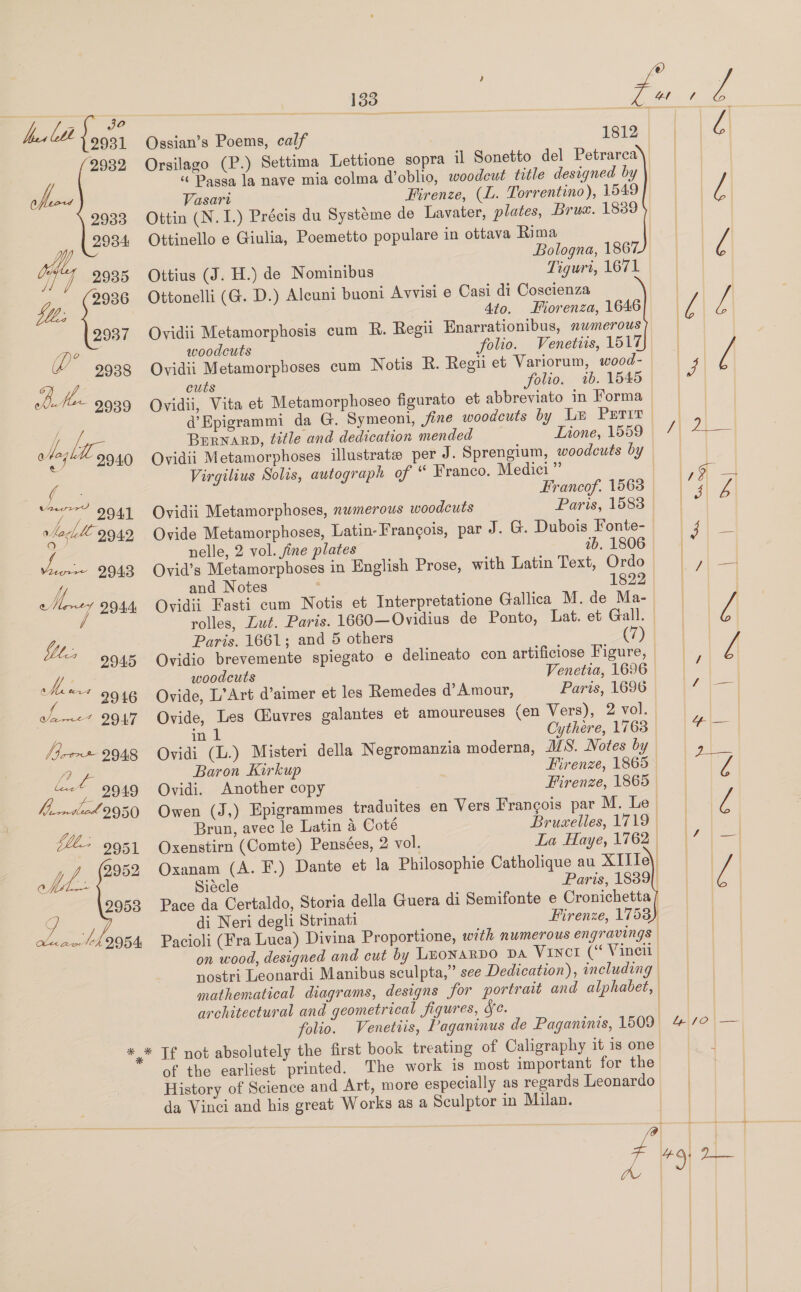 133
2931 Ossian's Poems, calf 1812
2932 Orsilago (P.) Settima Lettione sopra il Sonetto del Petrarca
“ Passa la nave mia colma d'oblio, woodcut title designed by
Vasari Firenze, (L. Torrentino), 1549
2933 Ottin (N. I.) Précis du Système de Lavater, plates, Brux. 1839
2934 Ottinello e Giulia, Poemetto populare in ottava Rima
Bologna, 1867
2935 Ottius (J. H.) de Nominibus Tiguri, 1671
2936 Ottonelli (G. D.) Alcuni buoni Avvisi e Casi di Coscienza
4to. Fiorenza, 1646
2937 Ovidii Metamorphosis cum R. Regii Enarrationibus, numerous
woodcuts folio. Venetiis, 1517
2938 Ovidii Metamorphoses cum Notis R. Regii et Variorum, wood-
cuts folio. ib. 1545
2939 Ovidii, Vita et Metamorphoseo figurato et abbreviato in Forma
d'Epigrammi da G. Symeoni, fine woodcuts by Le Petit
Bernard, title and dedication mended Lione, 1559
2940 Ovidii Metamorphoses illustratæ per J. Sprengium, woodcuts by
Virgilius Solis, autograph of “ Franco. Medici ”
Francof. 1563
2941 Ovidii Metamorphoses, numerous woodcuts Paris, 1583
2942 Ovide Metamorphoses, Latin-François, par J. G. Dubois Fonte-
nelle, 2 vol. fine plates ib. 1806
2943 Ovid's Metamorphoses in English Prose, with Latin Text, Ordo
and Notes 1822
2944 Ovidii Fasti cum Notis et Interpretatione Gallica M. de Ma-
rolles, Lut. Paris. 1660—Ovidius de Ponto, Lat. et Gall.
Paris. 1661; and 5 others (7)
2945 Ovidio brevemente spiegato e delineato con artificiose Figure,
woodcuts Venetia, 1696
2946 Ovide, L'Art d'aimer et les Remedes d'Amour, Paris, 1696
2947 Ovide, Les Œuvres galantes et amoureuses (en Vers), 2 vol.
in 1 Cythère, 1763
2948 Ovidi (L.) Misteri della Negromanzia moderna, MS. Notes by
Baron Kirkup Firenze, 1865
2949 Ovidi. Another copy Firenze, 1865
2950 Owen (J.) Epigrammes traduites en Vers François par M. Le
Brun, avec le Latin à Coté Bruxelles, 1719
2951 Oxenstirn (Comte) Pensées, 2 vol. La Haye, 1762
2952 Oxanam (A. F.) Dante et la Philosophie Catholique au XIIIe
Siècle Paris, 1839
2953 Pace da Certaldo, Storia della Guera di Semifonte e Cronichetta
di Neri degli Strinati Firenze, 1753
2954 Pacioli (Fra Luca) Divina Proportione, with numerous engravings
on wood, designed and cut by Leonardo da Vinci (“ Vincii
nostri Leonardi Manibus sculpta,” see Dedication), including
mathematical diagrams, designs for portrait and alphabet,
architectural and geometrical figures, &c.
folio. Venetiis, Paganinus de Paganinis, 1509
* * * If not absolutely the first book treating of Caligraphy it is one
of the earliest printed. The work is most important for the
History of Science and Art, more especially as regards Leonardo
da Vinci and his great Works as a Sculptor in Milan.